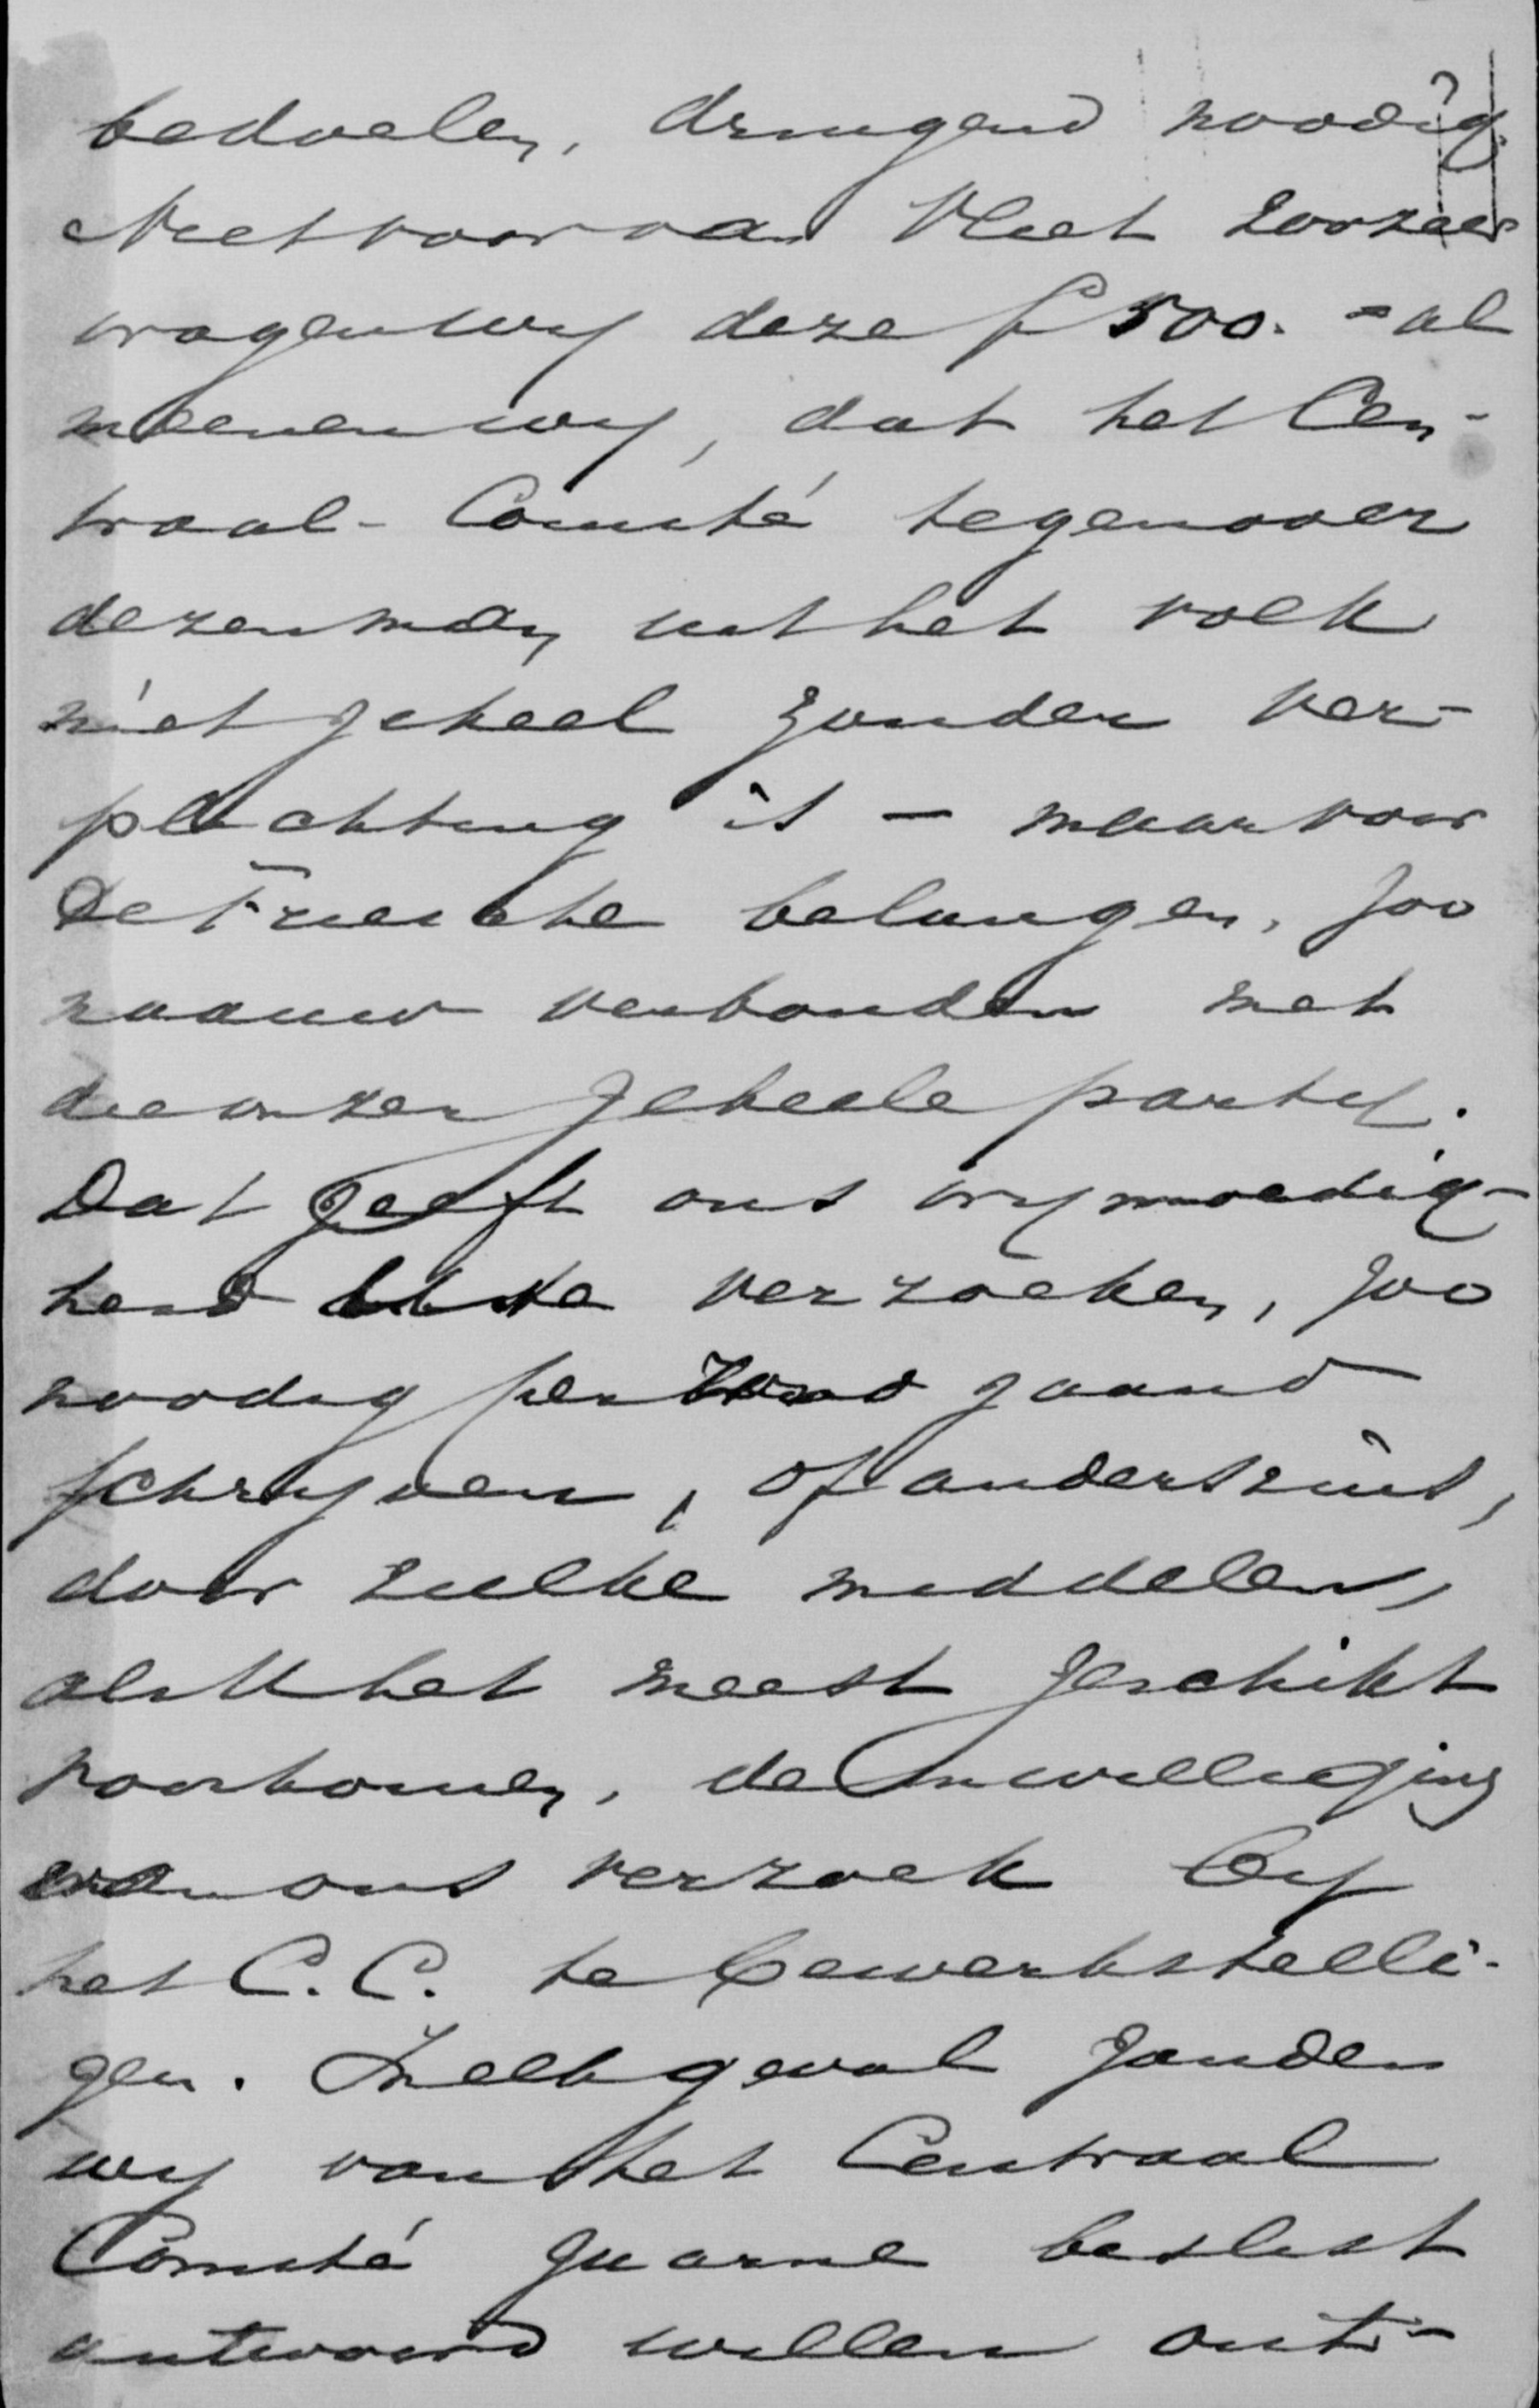 bedoelen, dringend noodig.
Niet voor van Vliet zoozeer
vragen wij deze f 500.- al
meenen wij, dat het Cen-
traal-Comité tegenover
dezen man uit het volk
niet geheel zonder ver-
plichting is — maar voor
de Friesche belangen, zoo
naauw verbonden met
die onzer geheele partij.
Dat geeft ons vrijmoedig-
heid U te verzoeken, zoo
noodig per rondgaand
schrijven, of anderszins,
door zulke middelen,
als U het meest geschikt
voorkomen, de inwilliging
van ons verzoek bij
het C.C. te bewerkstelli-
gen. In elk geval zouden
wij van het Centraal
Comité gaarne beslist
antwoord willen ont-